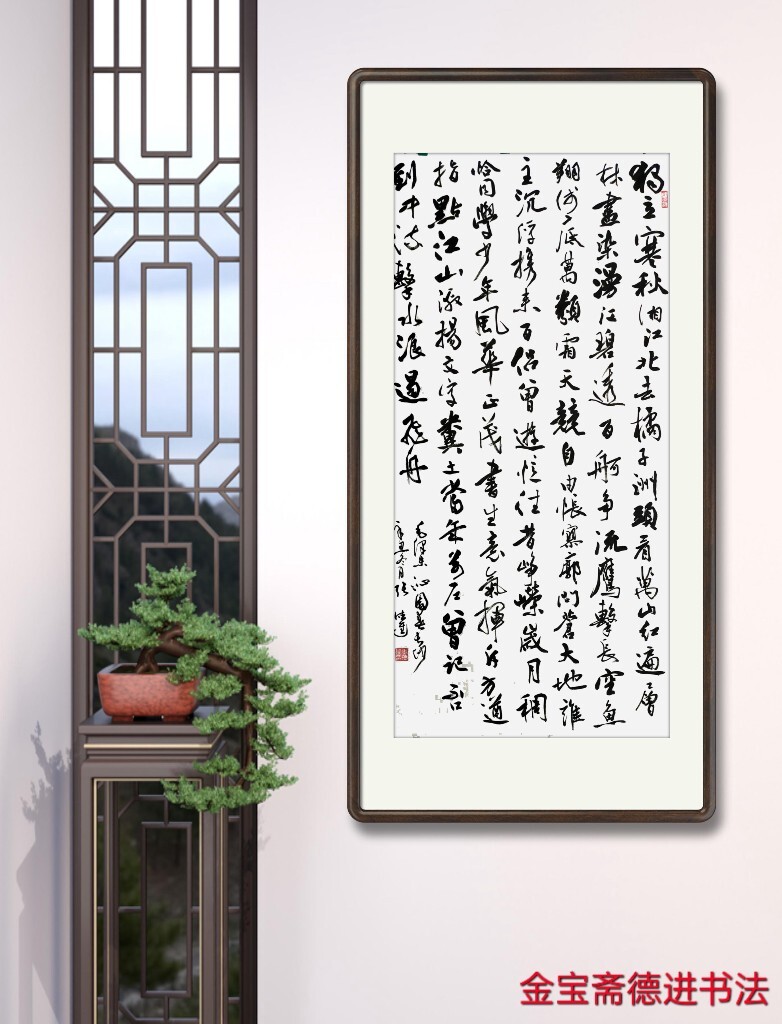 獨立寒秋湘江北去橘子洲頭看萬山红遍層
林盡染漫江碧透百舸争流鷹擊長空魚
翔浅底萬類霜天競自由悵寥廓问蒼大地誰
主沉浮携来百侣曾遊忆往昔峥嵘歲月稠
恰同學少年風華正茂書生意氣揮斥方遒
指點江山激揚文字糞土當年萬户曾記否
到中流擊水浪遏飛舟
毛澤東沁園春長沙
辛丑冬月張德進
金宝斋德进书法